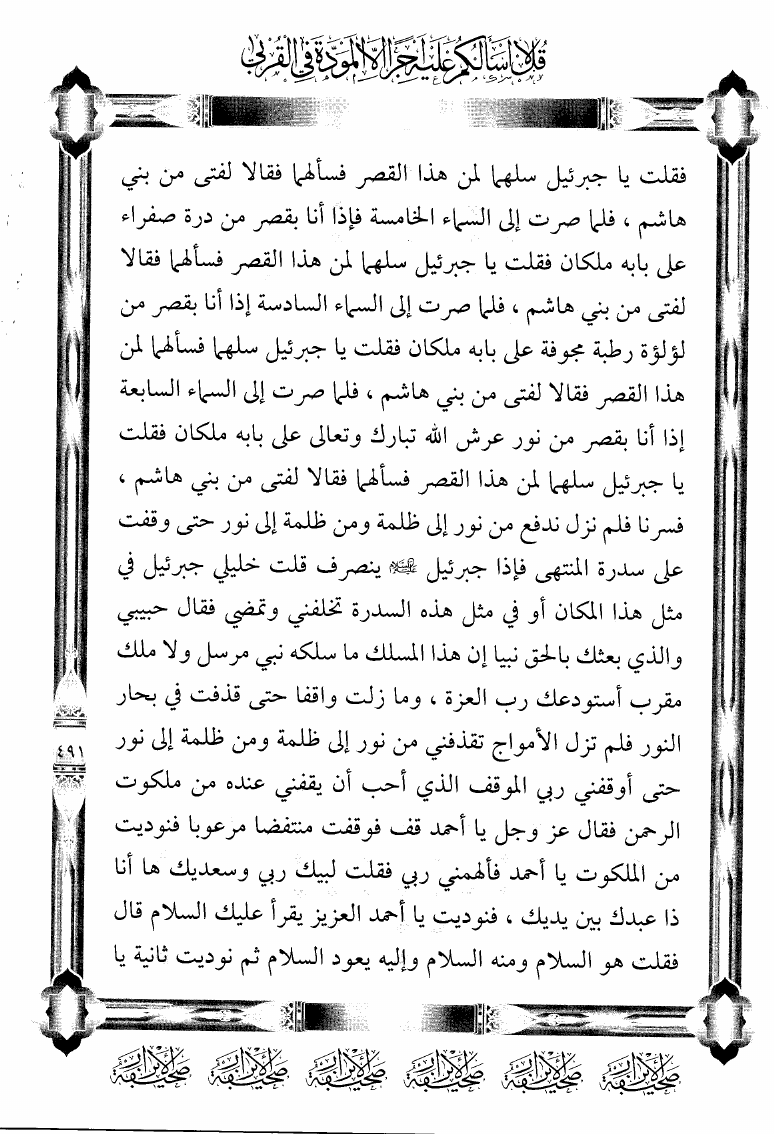 قل لا أسألكم عليه أجرا إلا المودة في القربى
فقلت يا جبرئيل سلهما لمن هذا القصر فسألهما فقالا لفتى من بني
هاشم ، فلما صرت إلى السماء الخامسة فإذا أنا بقصر من درة صفراء
على بابه ملكان فقلت يا جبرئيل سلهما لمن هذا القصر فسألهما فقالا
لفتى من بني هاشم ، فلما صرت إلى السماء السادسة إذا أنا بقصر من
لؤلؤة رطبة مجوفة على بابه ملكان فقلت يا جبرئيل سلهما فسألهما لمن
هذا القصر فقالا لفتى من بني هاشم ، فلما صرت إلى السماء السابعة
إذا أنا بقصر من نور عرش الله تبارك وتعالى على بابه ملكان فقلت
يا جبرئيل سلهما لمن هذا القصر فسألهما فقالا لفتى من بني هاشم ،
فسرنا فلم نزل ندفع من نور إلى ظلمة ومن ظلمة إلى نور حتى وقفت
على سدرة المنتهى فإذا جبرئيل ينصرف قلت خليلي جبرئيل في
مثل هذا المكان أو في مثل هذه السدرة تخلفني وتمضي فقال حبيبي
والذي بعثك بالحق نبيا إن هذا المسلك ما سلكه نبي مرسل ولا ملك
مقرب أستودعك رب العزة ، وما زلت واقفا حتى قذفت في بحار
النور فلم تزل الأمواج تقذفني من نور إلى ظلمة ومن ظلمة إلى نور
حتى أوقفني ربي الموقف الذي أحب أن يقفني عنده من ملكوت
الرحمن فقال عز وجل يا أحمد قف فوقفت منتفضا مرعوبا فنوديت
من الملكوت يا أحمد فألهمني ربي فقلت لبيك ربي وسعديك ها أنا
ذا عبدك بين يديك ، فنوديت يا أحمد العزيز يقرأ عليك السلام قال
فقلت هو السلام ومنه السلام وإليه يعود السلام ثم نوديت ثانية يا
٤٩١
صحيفة الأبرار صحيفة الأبرار صحيفة الأبرار صحيفة الأبرار صحيفة الأبرار صحيفة الأبرار